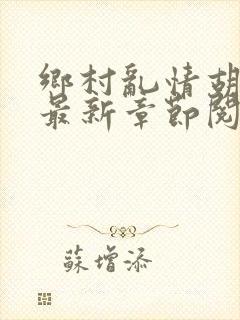 鄉村亂情胡
最新章節閱
蘇增添